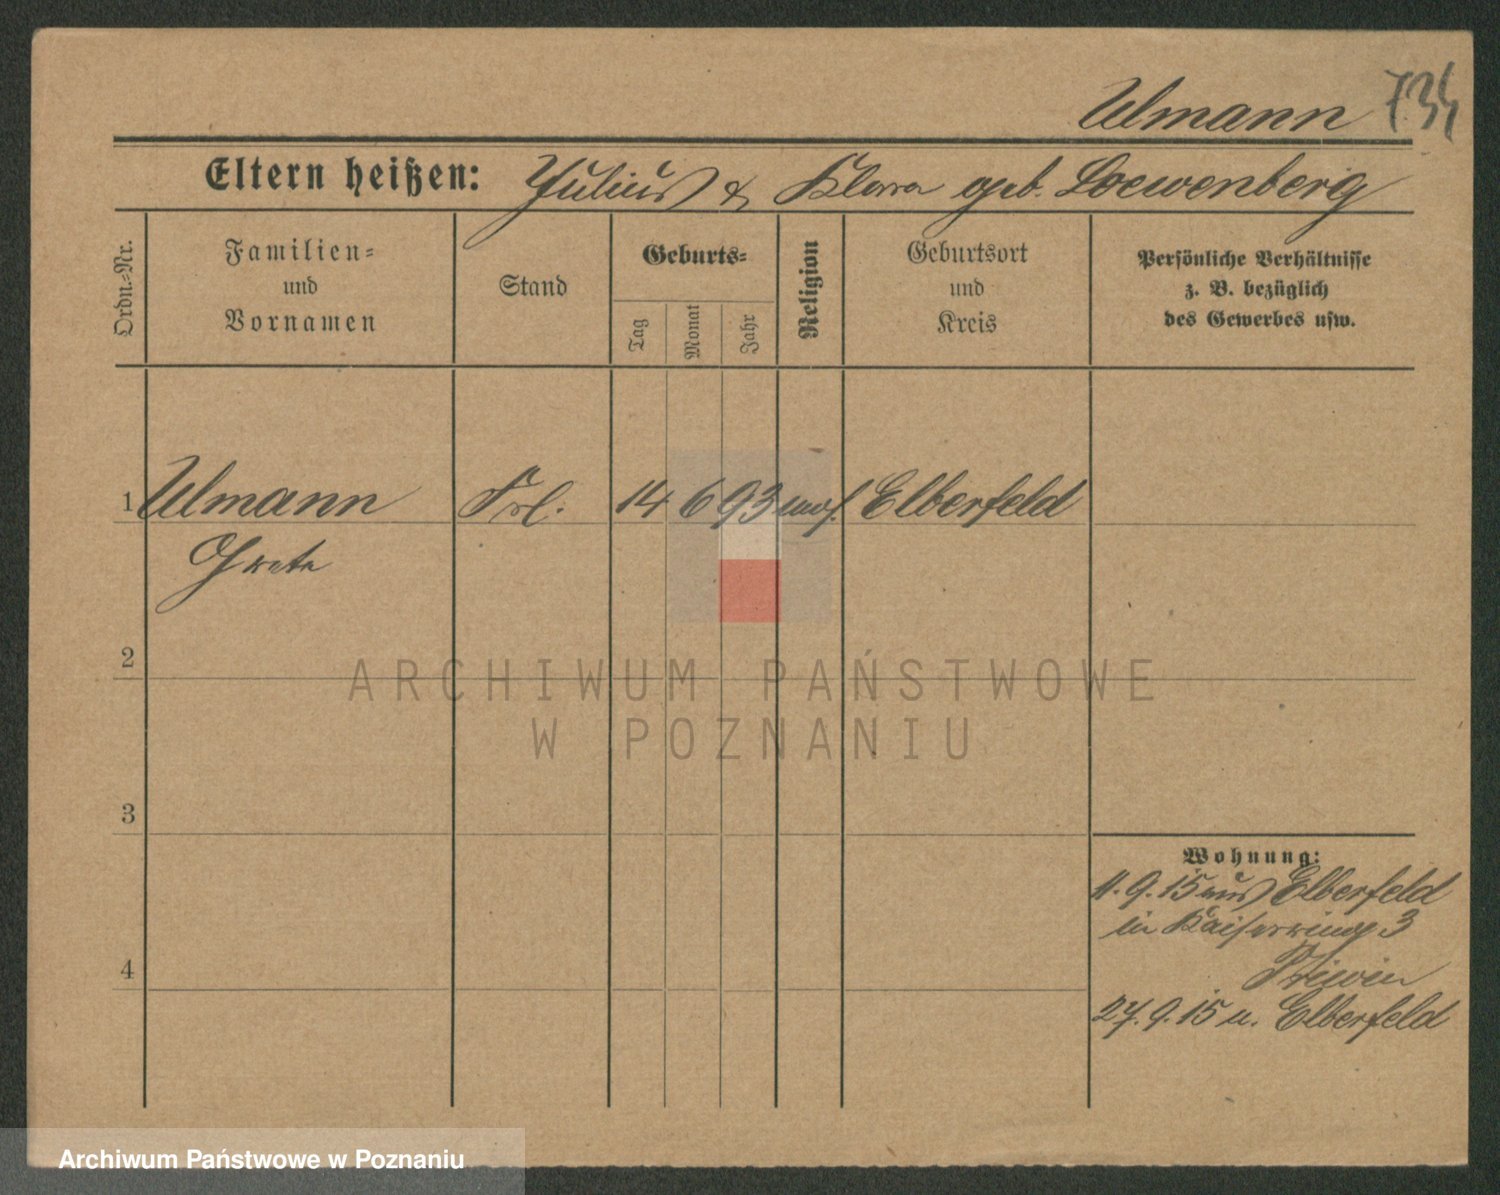 Ulmann 734
Eltern heißen: Julius & Klara geb. Loewenberg
Ordn.-Nr.
Familien=
und
Vornamen
Stand
Geburts=
Tag
Monat
Jahr
Religion
Geburtsort
und
Kreis
Persönliche Verhältnisse
z. B. bezüglich
des Gewerbes usw.
1 Ulmann Frl. 14 6 93 mos. Elberfeld
Grete
2
ARCHIWUM PAŃSTWOWE
W POZNANIU
3
Wohnung:
11.9.15 aus Elberfeld
in Kaiserring 3
4
27.9.15 n. Elberfeld
Archiwum Państwowe w Poznaniu